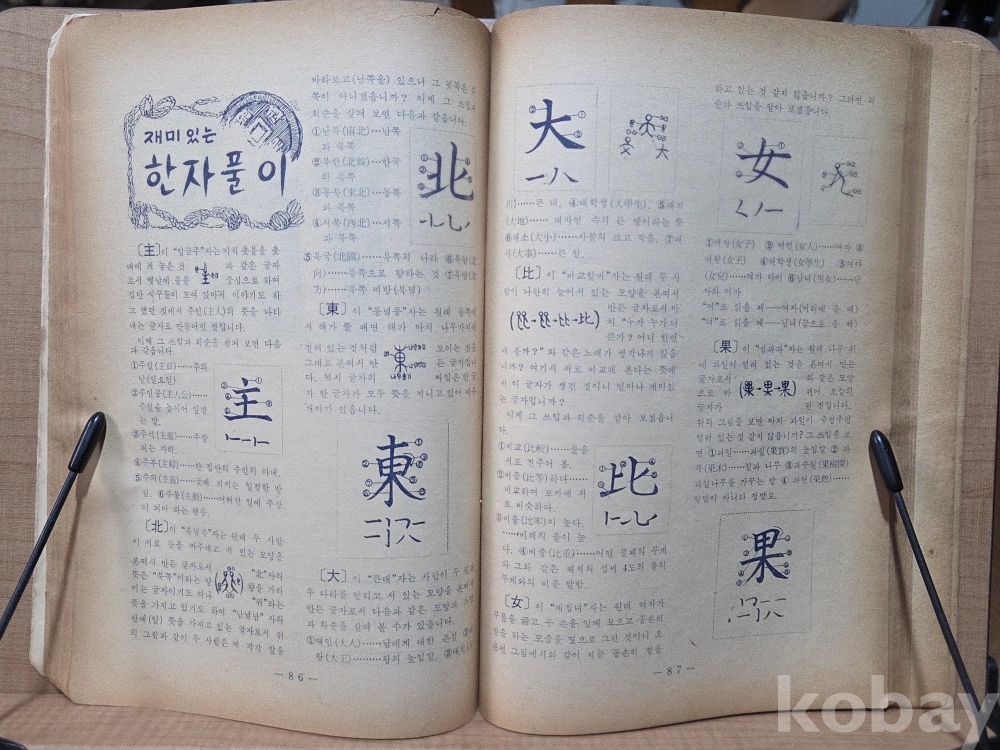 재미있는
한자풀이
〔主〕이 "임금주"자는 마치 촛불을 촛
대에 켜 놓은 것 과 같은 글자
로서 옛날에 불을 중심으로 하여
집안 식구들이 모여 앉아서 이야기도 하
고 했던 것에서 주인(主人)의 뜻을 나타
내는 글자로 만들어진 것입니다.
이제 그 쓰임과 획순을 살펴 보면 다음
과 같습니다.
①주일(主日)……주의
날(일요일)
②주인공(主人公)……
주인을 높이어 일컫
는 말.
③주석(主席)……주장
되는 자리.
④주부(主婦)……한 집안의 주인의 아내.
⑤주의(主義)……굳게 지키는 일정한 방
침. ⑥주동(主動)……어떠한 일에 주장
이 되어 하는 행동.
主
〔北〕이 "북녘북"자는 원래 두 사람
이 서로 등을 마주대고 서 있는 모양을
본떠서 만든 글자로서 "北"자의
뜻은 "북쪽"이라는 말을 가리
키는 글자이기도 하나 "위"라는
뜻을 가지고 있기도 하여 "남녘남" 자와
반대(앞) 뜻을 가지고 있는 글자로서 위
의 그림과 같이 두 사람은 제 각각 앞을
바라보고(남쪽을) 있으니 그 뒷쪽은
쪽이 아니겠읍니까? 이제 그 쓰임과
획순을 살펴 보면 다음과 같습니다.
①남북(南北)…남쪽
과 북쪽
②북한(北韓)…한국
의 북쪽
③동북(東北)…동쪽
과 북쪽
④서북(西北)…서쪽
과 북쪽
北
⑤북국(北國)……북쪽의 나라 ⑥북향(北
向)……북쪽으로 향하는 것 ⑦북방(北
方)……북쪽 지방(북녘)
〔東〕이 "동녘동"자는 원래 동쪽에
서 해가 뜰 때면 해가 마치 나무가지에
걸려 있는 것처럼 보이는 것을
그대로 본떠서 만 든 글자입니
다. 역시 글자의
자 한 글자가 모두 뜻을 지니고 있어 매우
재미가 있습니다.
東
〔大〕이 "큰대"자는 사람이 두 팔과
두 다리를 벌리고 서 있는 모양을 본떠서
만든 글자로서 다음과 같은 모양과 쓰임
과 획순을 살펴 볼 수가 있습니다.
①대인(大人)……남에게 대한 존칭 ②대
왕(大王)……왕의 높임말. ③대천(大
—86—
大
大
川)……큰 내. ④대학생(大學生). ⑤대지
(大地)…… 대자연 속의 큰 땅이라는 뜻
⑥대소(大小)……사물의 크고 작음. ⑦대
사(大事)……큰 일.
〔比〕이 "비교할비"자는 원래 두 사
람이 나란히 늘어서 있는 모양을 본떠서
만든 글자로서 마
치 "누가 누가 더
큰가? 어디 한번
대 볼까?"와 같은 노래가 생각나지 않읍
니까? 여기서 서로 비교해 본다는 뜻에
서 이 글자가 생긴 것이니 얼마나 재미있
는 글자입니까?
이제 그 쓰임과 획순을 알아 보겠읍니
다.
①비교(比較)……둘을
서로 견주어 봄.
②비등(比等)하다……
비교하여 보기에 서
로 비슷하다.
③비율(比率)이 높다.
……비례의 율이 높
다. ④비중(比重)……어떤 물체의 무게
와 그와 같은 체적의 섭씨 4도의 물의
무게와의 비를 말함.
比
〔女〕이 "계집녀"자는 원래 여자가
무릎을 꿇고, 두 손을 앞에 모으고 공손히
절을 하는 모습을 옆으로 그린 것이니 오
른편 그림에서와 같이 지금 공손히 절을
하고 있는 것 같지 않읍니까? 그러면 획
순과 쓰임을 알아 보겠읍니다.
女
①여자(女子) ②여인(女人)……여자 ③
여왕(女王) ④여학생(女學生) ⑤여아
(女兒)……여자 아이 ⑥남녀(男女)……남
자와 여자
"여"로 읽을 때——여자(머리에 올 때)
"녀"로 읽을 때——남녀(끝으로 올 때)
〔果〕이 "실과과"자는 원래 나무 위
에 과일이 열려 있는 모양을 본떠서 만든
글자로서 와 같은 모양
으로 바 뀌어 오늘의
글자가 된 것입니다.
위의 그림을 보면 마치 과일이 주렁주렁
열려 있는 것 같지 않읍니까? 그 쓰임을 보
면 ①과일……실과(果實)의 높임말 ②과
목(果木)……실과 나무 ③과수원(果樹園)
과일나무를 가꾸는 밭 ④과연(果然)……
빈말이 아니라 정말로.
果
—87—
kobay